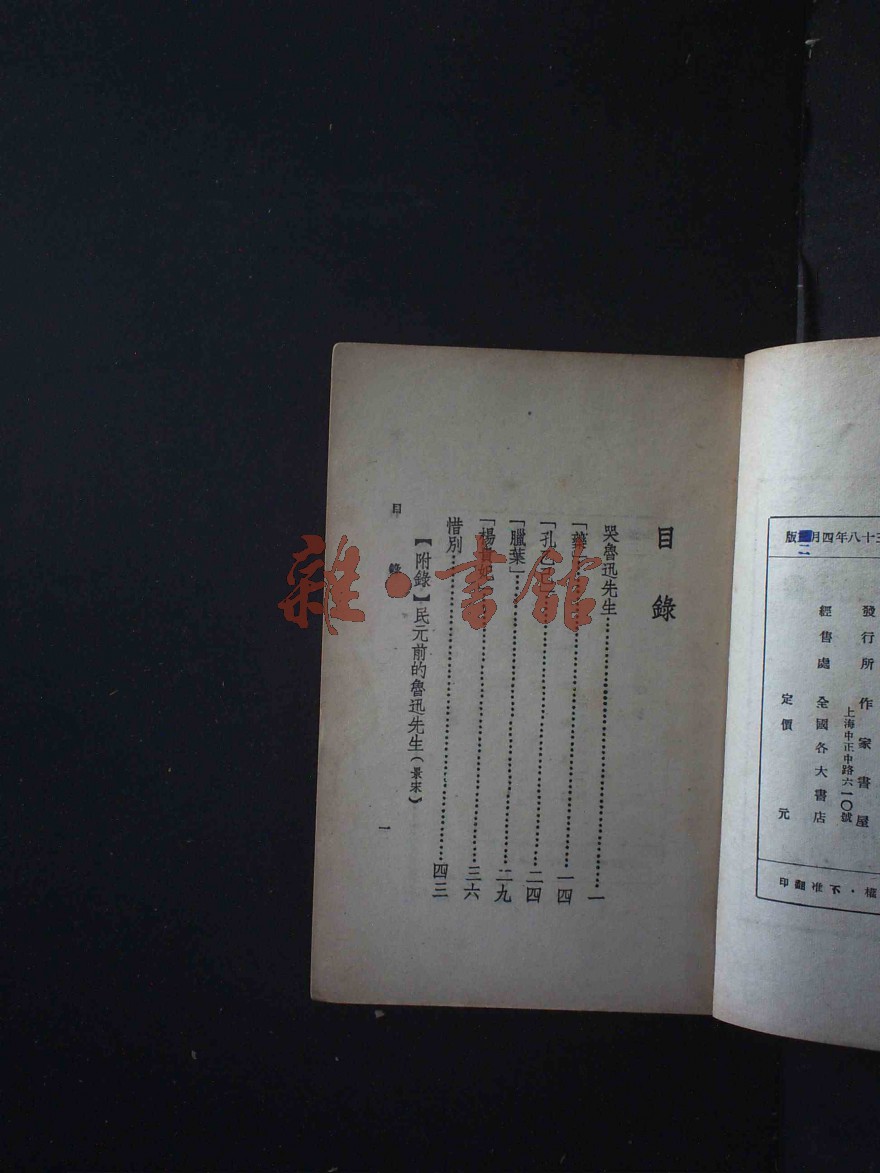 目錄
哭魯迅先生……一
「藥」……一四
「孔乙己」……二四
「臘葉」……二九
「楊貴妃」……三六
惜別……四三
【附錄】民元前的魯迅先生(景宋)
目 錄
一
三十八年四月 二版
發行所 作家書屋
上海中正中路六一〇號
經售處 全國各大書店
定價 元
權·不准翻印
雜·書館